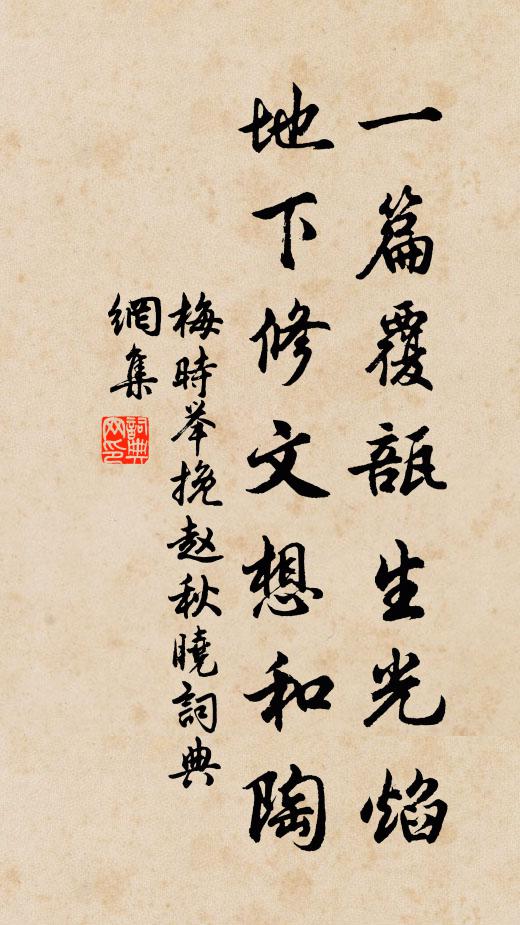 一篇覆瓿生光焰
地下修文想和陶
梅時举挽赵秋曉詞典
網集
詞典
网印